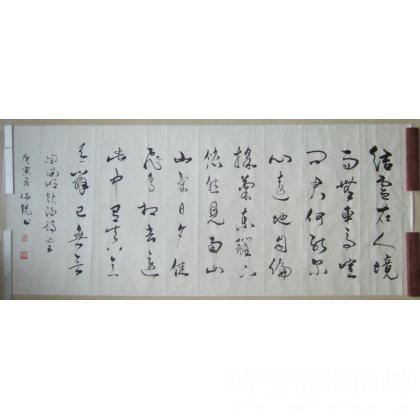 結廬在人境
而無車馬喧
问君何能尔
心遠地自偏
採菊東籬下
悠然見南山
山氣日夕佳
飛鳥相與還
此中有真意
欲辨已忘言
陶渊明饮酒诗之五
庚寅